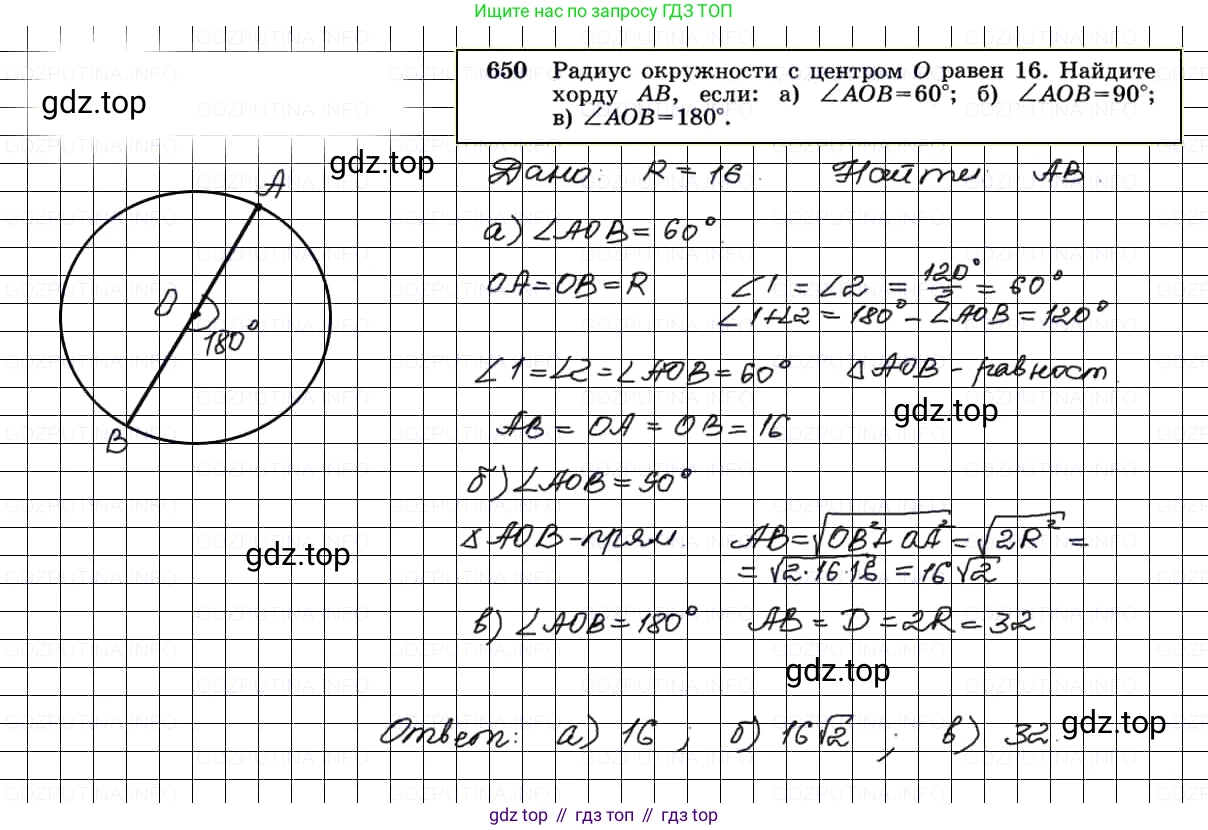 Ищите нас по запросу ГДЗ ТОП
650 Радиус окружности с центром O равен 16. Найдите
хорду AB, если: а) ∠AOB=60°; б) ∠AOB=90°;
в) ∠AOB=180°.
gdz.top
gdz.top
Дано: R = 16. Найти: AB.
A
O
180°
B
а) ∠AOB = 60°.
OA = OB = R ∠1 = ∠2 = 120°/2 = 60°
∠1+∠2 = 180° - ∠AOB = 120°
∠1 = ∠2 = ∠AOB = 60° △AOB - равност.
gdz.top
AB = OA = OB = 16
б) ∠AOB = 90°
△AOB - прям. AB = √OB² + OA² = √2R² =
= √2·16·16 = 16√2
gdz.top
в) ∠AOB = 180° AB = D = 2R = 32
gdz.top
Ответ: а) 16 ; б) 16√2 ; в) 32.
gdz.top
gdz top // гдз топ // gdz top